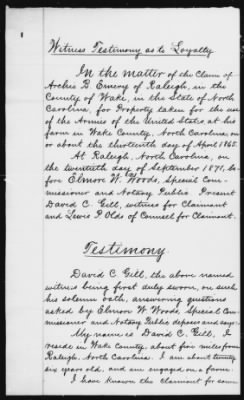 Witness Testimony as to Loyalty
In the matter of the Claim of
Archie B. Emery of Raleigh, in the
County of Wake, in the State of North
Carolina, for Property taken for the use
of the Armies of the United States, at his
farm in Wake County, North Carolina, on
or about the thirteenth day of April 1865.
At Raleigh, North Carolina, on
the twentieth day of September 1871, Be-
fore Elmore W. Woods, Special Com-
missioner and Notary Public. Present
David C. Gill, witness for Claimant
and Lewis P. Olds of Counsel for Claimant.
Testimony
David C. Gill, the above named
witness being first duly sworn, on such
his solemn oath, answering questions
asked by Elmore W. Woods, Special Com-
missioner and Notary Public deposes and says:
My name is David C. Gill. I
reside in Wake County, about five miles from
Raleigh, North Carolina. I am about twenty
six years old, and am engaged on a farm.
I have known the Claimant for some